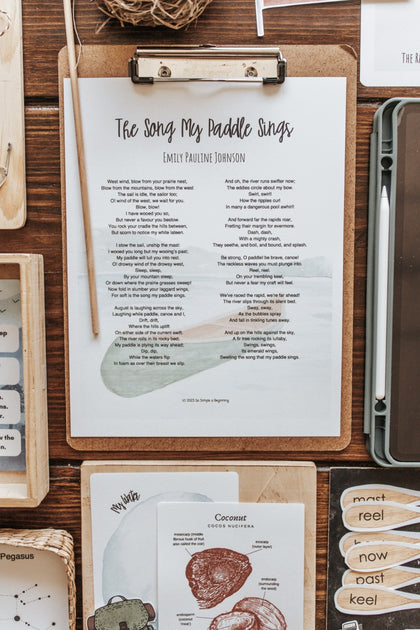 The Song My Paddle Sings
Emily Pauline Johnson
West wind, blow from your prairie nest,
Blow from the mountains, blow from the west
The sail is idle, the sailor too;
O! wind of the west, we wait for you.
Blow, blow!
I have wooed you so,
But never a favour you bestow.
You rock your cradle the hills between,
But scorn to notice my white lateen.
I stow the sail, unship the mast:
I wooed you long but my wooing's past;
My paddle will lull you into rest.
O! drowsy wind of the drowsy west,
Sleep, sleep,
By your mountain steep,
Or down where the prairie grasses sweep!
Now fold in slumber your laggard wings,
For soft is the song my paddle sings.
August is laughing across the sky,
Laughing while paddle, canoe and I,
Drift, drift,
Where the hills uplift
On either side of the current swift.
The river rolls in its rocky bed;
My paddle is plying its way ahead;
Dip, dip,
While the waters flip
In foam as over their breast we slip.
And oh, the river runs swifter now;
The eddies circle about my bow.
Swirl, swirl!
How the ripples curl
In many a dangerous pool awhirl!
And forward far the rapids roar,
Fretting their margin for evermore.
Dash, dash,
With a mighty crash,
They seethe, and boil, and bound, and splash.
Be strong, O paddle! be brave, canoe!
The reckless waves you must plunge into.
Reel, reel.
On your trembling keel,
But never a fear my craft will feel.
We've raced the rapid, we're far ahead!
The river slips through its silent bed.
Sway, sway,
As the bubbles spray
And fall in tinkling tunes away.
And up on the hills against the sky,
A fir tree rocking its lullaby,
Swings, swings,
Its emerald wings,
Swelling the song that my paddle sings.
© 2023 So Simple a Beginning
The R
Pegasus
My
Coconut
Cocos nucifera
mesocarp (middle
fibrous husk of fruit
also called the coir)
exocarp
(outer layer)
endocarp
(surrounding
the seed)
endosperm
(coconut
mast
reel
now
past
reel